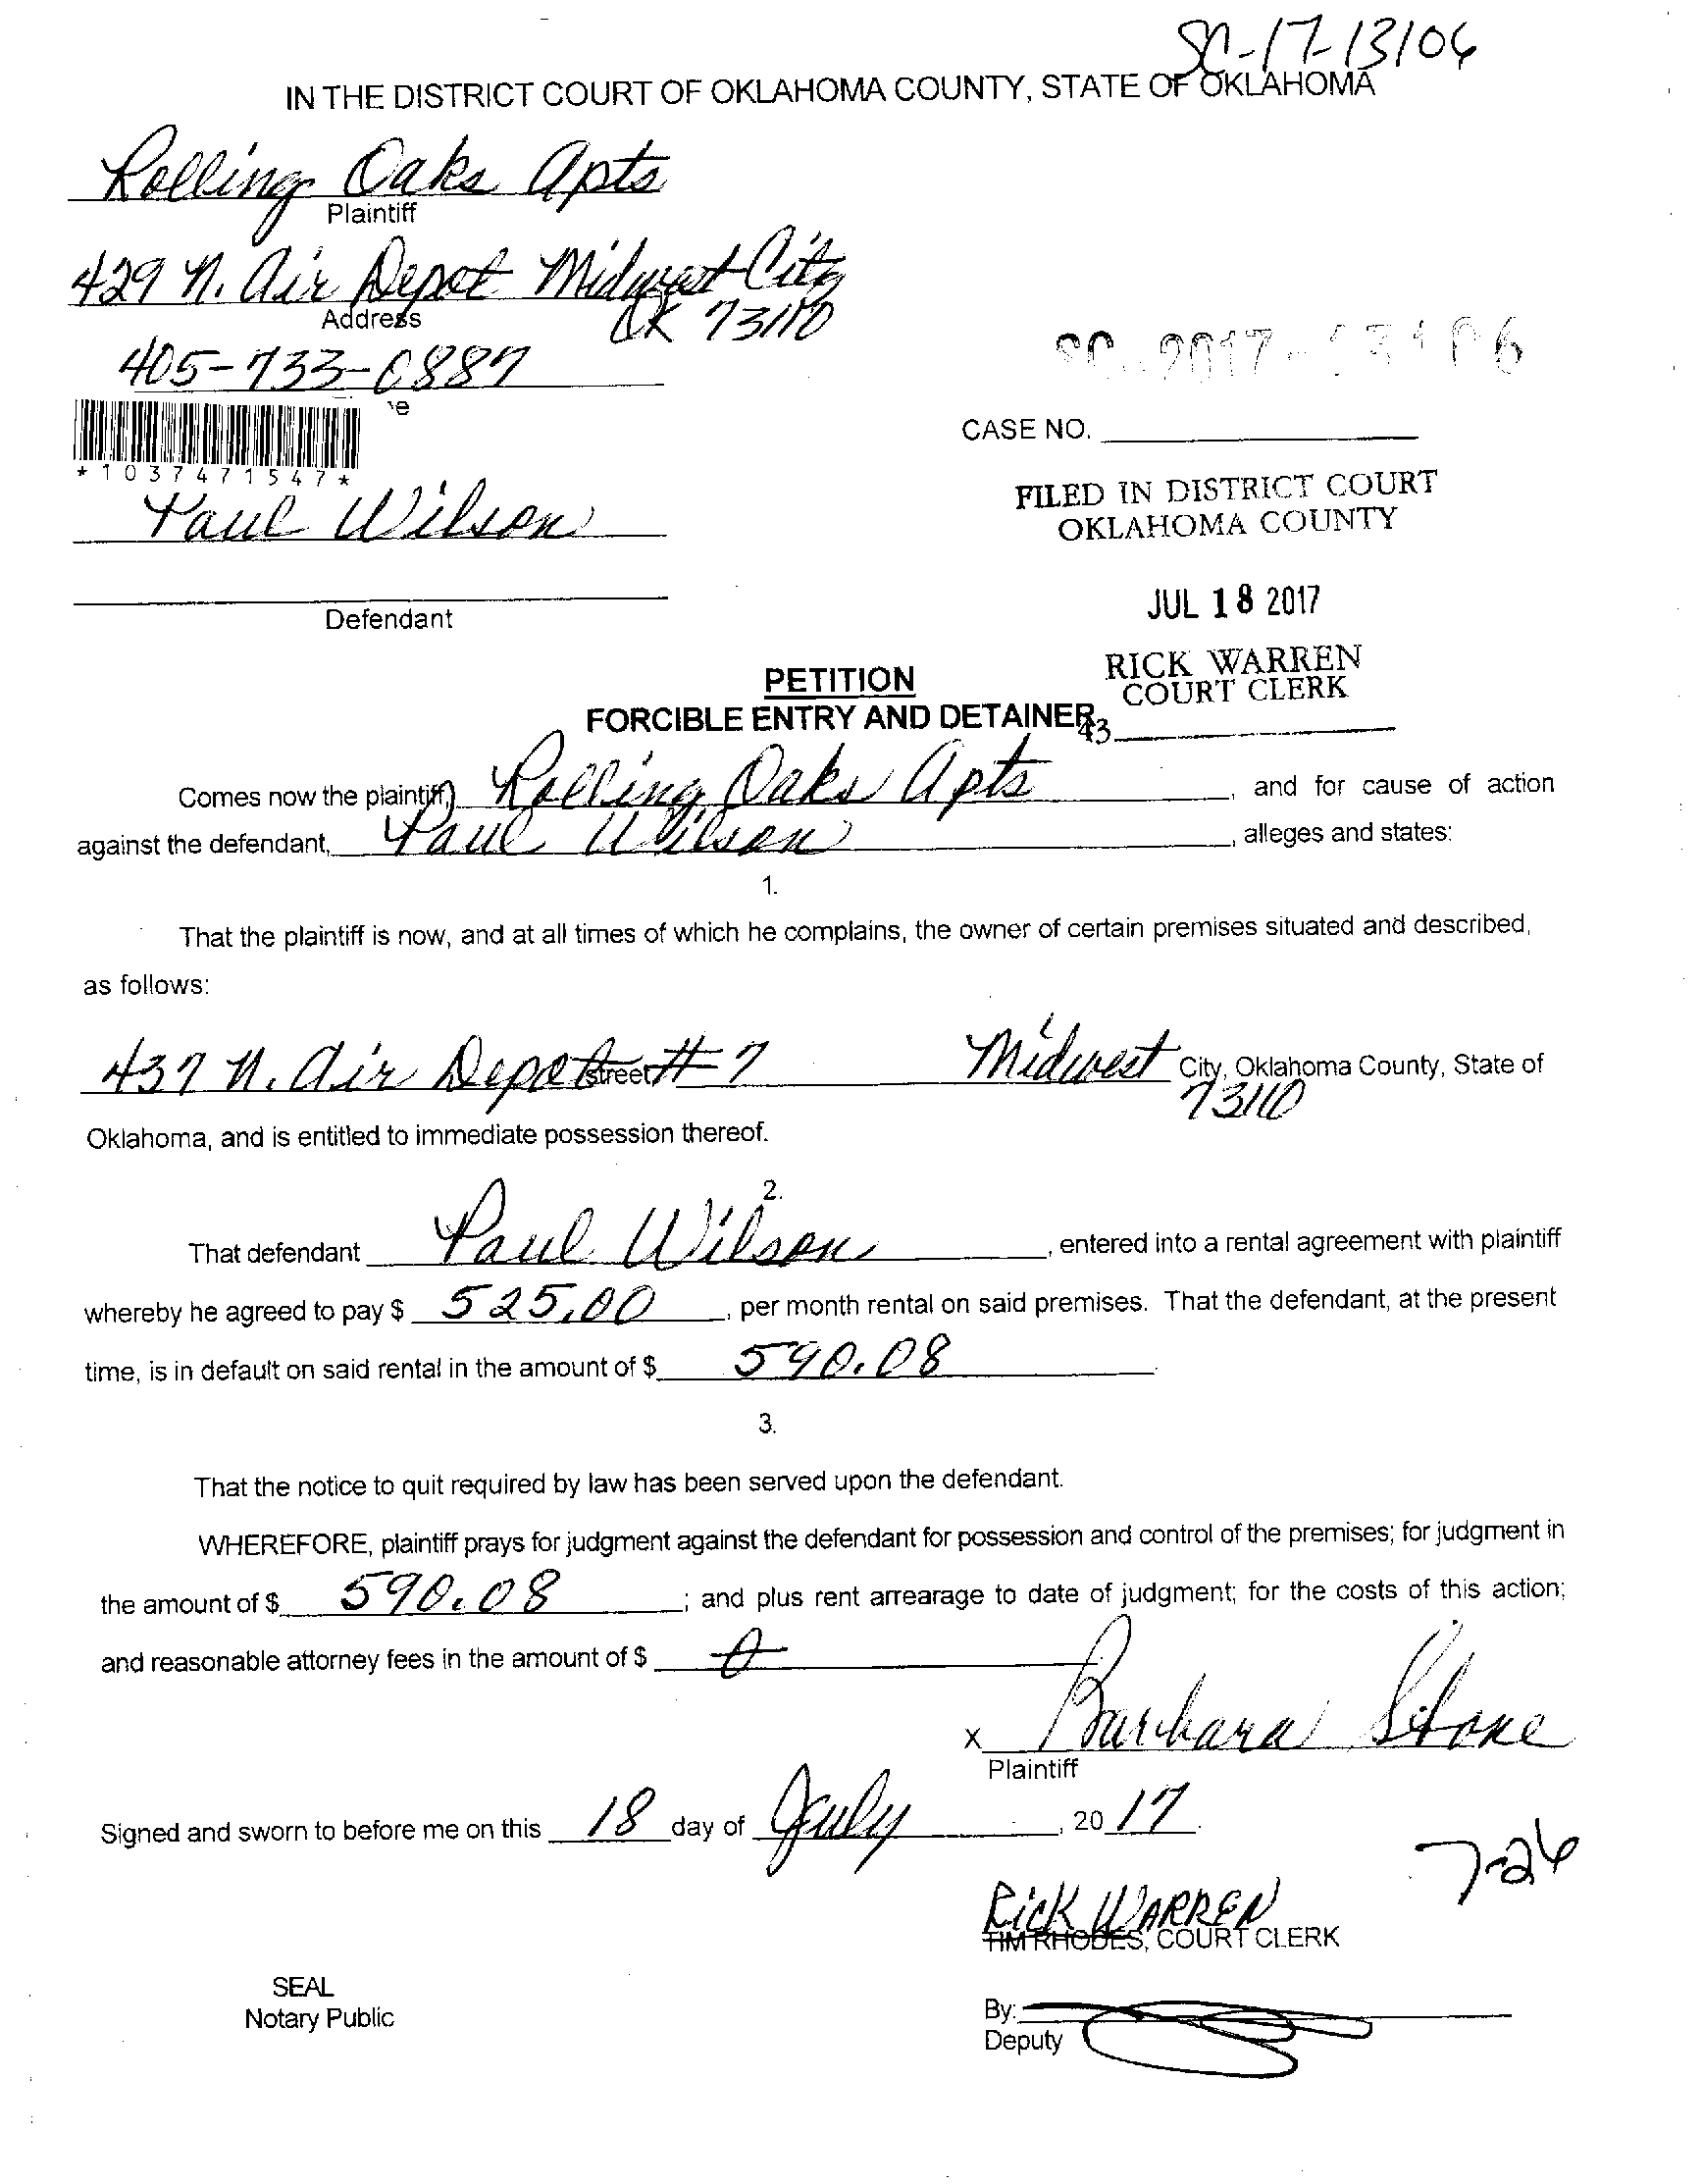 SC-17-13106
IN THE DISTRICT COURT OF OKLAHOMA COUNTY, STATE OF OKLAHOMA
Rolling Oaks Apts
Plaintiff
429 N. Air Depot Midwest City
OK 73110
Address
405-733-0887
SC-2017-13106
*1037471547*
CASE NO.
FILED IN DISTRICT COURT
OKLAHOMA COUNTY
Paul Wilson
Defendant
JUL 18 2017
RICK WARREN
COURT CLERK
43
PETITION
FORCIBLE ENTRY AND DETAINER
Comes now the plaintiff, Rolling Oaks Apts, and for cause of action
against the defendant, Paul Wilson, alleges and states:
1.
That the plaintiff is now, and at all times of which he complains, the owner of certain premises situated and described,
as follows:
437 N. Air Depot #7 Midwest City, Oklahoma County, State of
Street 73110
Oklahoma, and is entitled to immediate possession thereof.
2.
That defendant Paul Wilson, entered into a rental agreement with plaintiff
whereby he agreed to pay $ 525.00, per month rental on said premises. That the defendant, at the present
time, is in default on said rental in the amount of $ 590.08.
3.
That the notice to quit required by law has been served upon the defendant.
WHEREFORE, plaintiff prays for judgment against the defendant for possession and control of the premises; for judgment in
the amount of $ 590.08; and plus rent arrearage to date of judgment; for the costs of this action;
and reasonable attorney fees in the amount of $ 0
x Barbara Stone
Plaintiff
Signed and sworn to before me on this 18 day of July, 2017.
7-26
Rick WARREN
TIM RHODES, COURT CLERK
SEAL
Notary Public
By:
Deputy